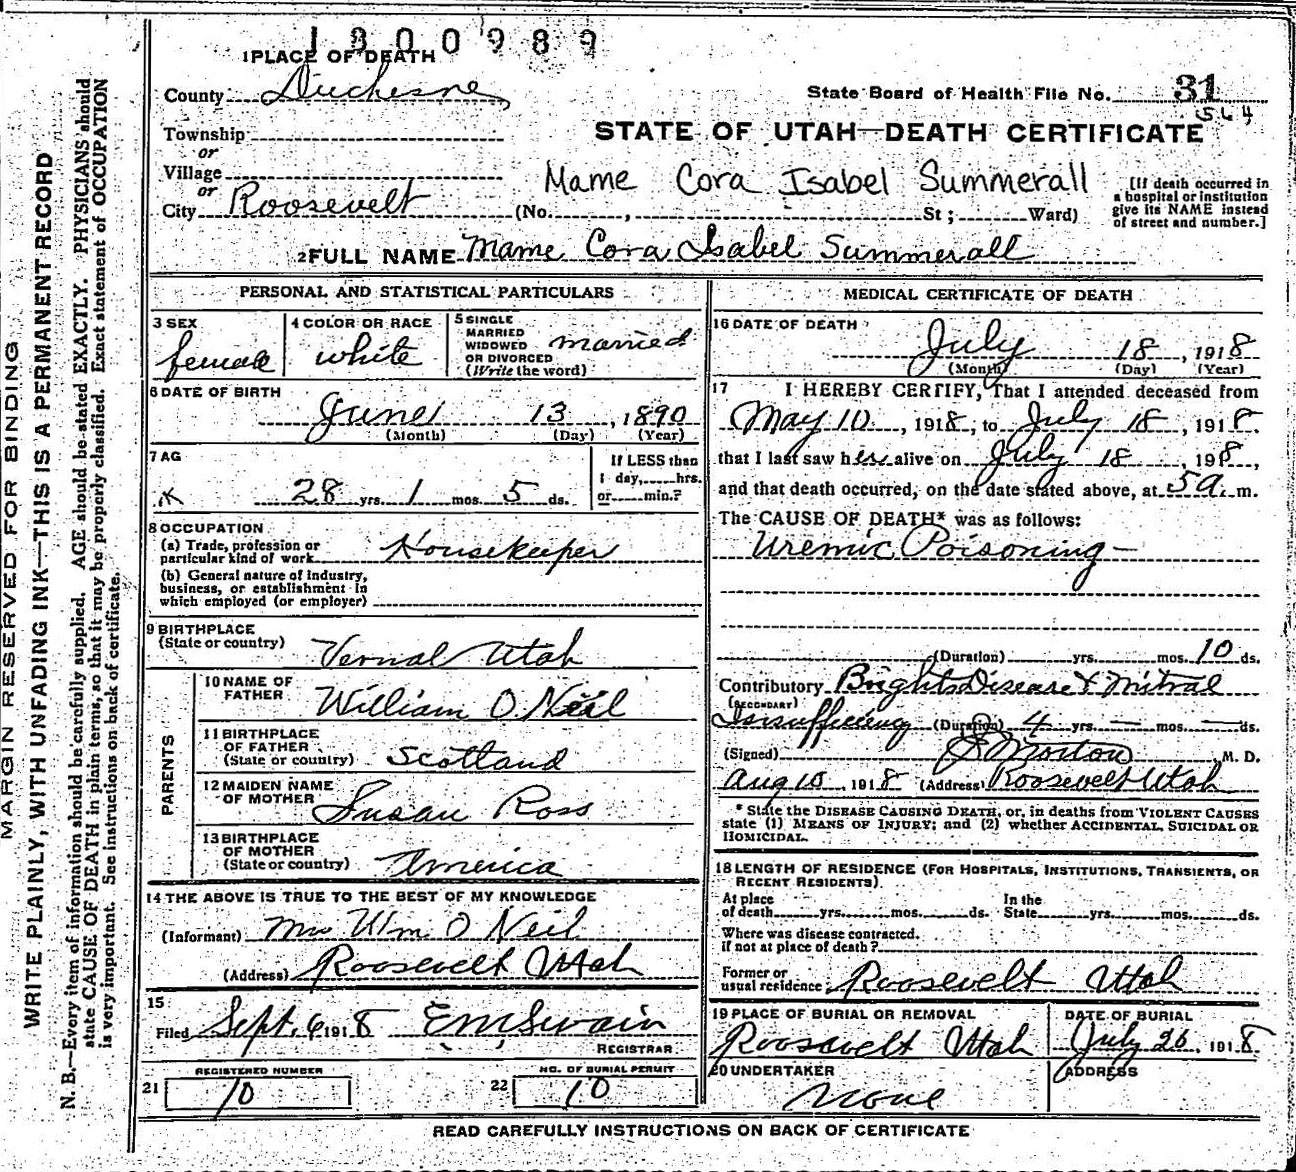 1800989
1 PLACE OF DEATH
County Duchesne
State Board of Health File No. 31
564
Township
or
STATE OF UTAH—DEATH CERTIFICATE
Village
or
Mame Cora Isabel Summerall
City Roosevelt (No. , St; Ward)
[If death occurred in
a hospital or institution
give its NAME instead
of street and number.]
2 FULL NAME Mame Cora Isabel Summerall
PERSONAL AND STATISTICAL PARTICULARS
3 SEX
female
4 COLOR OR RACE
white
5 SINGLE
MARRIED
WIDOWED
OR DIVORCED
(Write the word)
married
6 DATE OF BIRTH
June 13, 1890
(Month) (Day) (Year)
7 AG
28 yrs. 1 mos. 5 ds.
If LESS than
1 day, hrs.
or min.?
8 OCCUPATION
(a) Trade, profession or
particular kind of work Housekeeper
(b) General nature of industry,
business, or establishment in
which employed (or employer)
9 BIRTHPLACE
(State or country) Vernal Utah
PARENTS
10 NAME OF
FATHER William O Neil
11 BIRTHPLACE
OF FATHER
(State or country) Scotland
12 MAIDEN NAME
OF MOTHER Susan Ross
13 BIRTHPLACE
OF MOTHER
(State or country) America
14 THE ABOVE IS TRUE TO THE BEST OF MY KNOWLEDGE
(Informant) Mrs Wm. O Neil
(Address) Roosevelt Utah
15
Filed Sept. 6 1918 E M Swain
REGISTRAR
REGISTERED NUMBER
21 10
NO. OF BURIAL PERMIT
22 10
MEDICAL CERTIFICATE OF DEATH
16 DATE OF DEATH
July 18, 1918
(Month) (Day) (Year)
17 I HEREBY CERTIFY, That I attended deceased from
May 10, 1918, to July 18, 1918.
that I last saw her alive on July 18, 1918,
and that death occurred, on the date stated above, at 5 a. m.
The CAUSE OF DEATH* was as follows:
Uremic Poisoning—
(Duration) yrs. mos. 10 ds.
Contributory Brights Disease & Mitral
(SECONDARY)
Insufficiency (Duration) 4 yrs. — mos. — ds.
(Signed) Morton M. D.
Aug 10, 1918 (Address) Roosevelt Utah
* State the DISEASE CAUSING DEATH, or, in deaths from VIOLENT CAUSES
state (1) MEANS OF INJURY; and (2) whether ACCIDENTAL, SUICIDAL OR
HOMICIDAL.
18 LENGTH OF RESIDENCE (FOR HOSPITALS, INSTITUTIONS, TRANSIENTS, OR
RECENT RESIDENTS).
At place
of death yrs. mos. ds.
In the
State yrs. mos. ds.
Where was disease contracted.
if not at place of death?
Former or
usual residence Roosevelt Utah
19 PLACE OF BURIAL OR REMOVAL
Roosevelt Utah
DATE OF BURIAL
July 26, 1918
20 UNDERTAKER
None
ADDRESS
READ CAREFULLY INSTRUCTIONS ON BACK OF CERTIFICATE
MARGIN RESERVED FOR BINDING
WRITE PLAINLY, WITH UNFADING INK—THIS IS A PERMANENT RECORD
N. B.—Every item of information should be carefully supplied. AGE should be stated EXACTLY. PHYSICIANS should
state CAUSE OF DEATH in plain terms, so that it may be properly classified. Exact statement of OCCUPATION
is very important. See instructions on back of certificate.